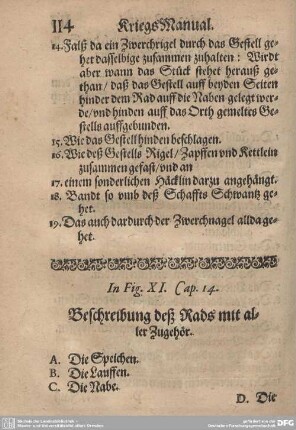 114 KriegsManual.
14. Falß da ein Zwerchrigel durch das Gestell ge-
het dasselbige zusammen zuhalten: Wirdt
aber wann das Stück stehet herauß ge-
than / daß das Gestell auff beyden Seiten
hinder dem Rad auff die Naben gelegt wer-
de / vnd hinden auff das Orth gemeltes Ge-
stells auffgebunden.
15. Wie das Gestell hinden beschlagen.
16. Wie deß Gestells Rigel / Zapffen vnd Kettlein
zusammen gefast / vnd an
17. einem sonderlichen Häcklin darzu angehängt.
18. Bandt so vmb deß Schaffts Schwantz ge-
het.
19. Das auch dardurch der Zwerchnagel allda ge-
het.
In Fig. XI. Cap. 14.
Beschreibung deß Rads mit al-
ler Zugehör.
A. Die Speichen.
B. Die Lauffen.
C. Die Nabe.
D. Die